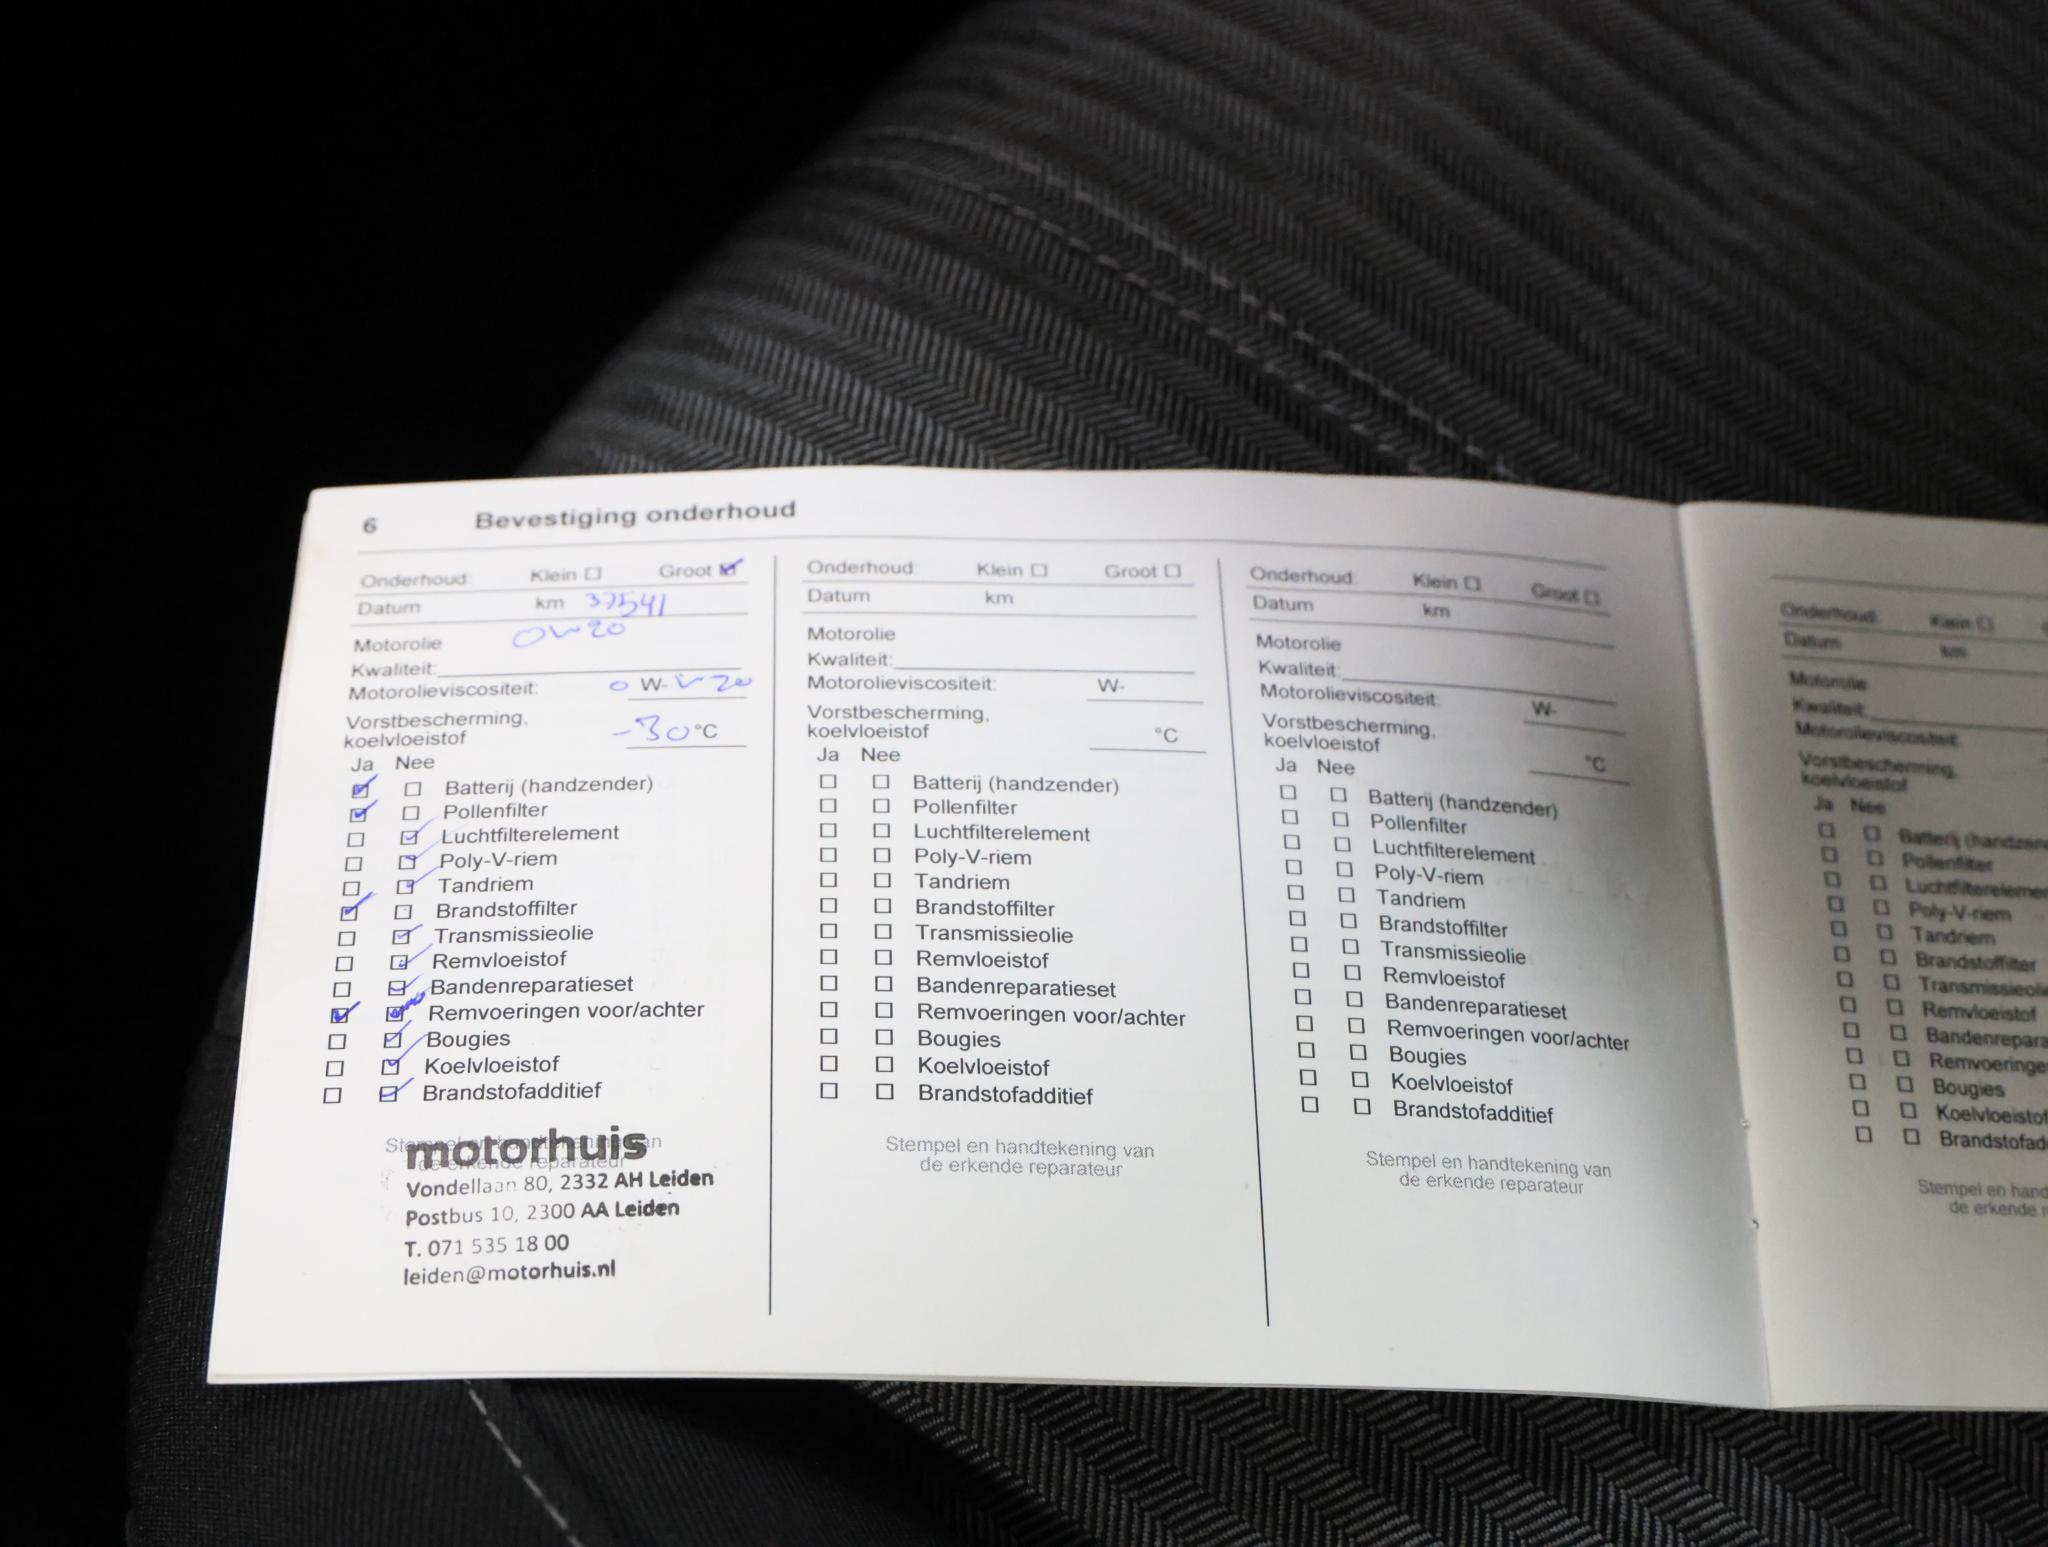 6 Bevestiging onderhoud
Onderhoud: Klein Groot
Datum km 37541
Motorolie 0W20
Kwaliteit:
Motorolieviscositeit: 0 W- 20
Vorstbescherming,
koelvloeistof -30 °C
Ja Nee
Batterij (handzender)
Pollenfilter
Luchtfilterelement
Poly-V-riem
Tandriem
Brandstoffilter
Transmissieolie
Remvloeistof
Bandenreparatieset
Remvoeringen voor/achter
Bougies
Koelvloeistof
Brandstofadditief
Stempel en handtekening van
de erkende reparateur
motorhuis
Vondellaan 80, 2332 AH Leiden
Postbus 10, 2300 AA Leiden
T. 071 535 18 00
leiden@motorhuis.nl
Onderhoud: Klein Groot
Datum km
Motorolie
Kwaliteit:
Motorolieviscositeit: W-
Vorstbescherming,
koelvloeistof °C
Ja Nee
Batterij (handzender)
Pollenfilter
Luchtfilterelement
Poly-V-riem
Tandriem
Brandstoffilter
Transmissieolie
Remvloeistof
Bandenreparatieset
Remvoeringen voor/achter
Bougies
Koelvloeistof
Brandstofadditief
Stempel en handtekening van
de erkende reparateur
Onderhoud: Klein Groot
Datum km
Motorolie
Kwaliteit:
Motorolieviscositeit: W-
Vorstbescherming,
koelvloeistof °C
Ja Nee
Batterij (handzender)
Pollenfilter
Luchtfilterelement
Poly-V-riem
Tandriem
Brandstoffilter
Transmissieolie
Remvloeistof
Bandenreparatieset
Remvoeringen voor/achter
Bougies
Koelvloeistof
Brandstofadditief
Stempel en handtekening van
de erkende reparateur
Onderhoud: Klein
Datum km
Motorolie
Kwaliteit:
Motorolieviscositeit:
Vorstbescherming,
koelvloeistof
Ja Nee
Batterij (handzen
Pollenfilter
Luchtfiltereleme
Poly-V-riem
Tandriem
Brandstoffilter
Transmissieoli
Remvloeistof
Bandenrepara
Remvoeringe
Bougies
Koelvloeistof
Brandstofad
Stempel en hand
de erkende r